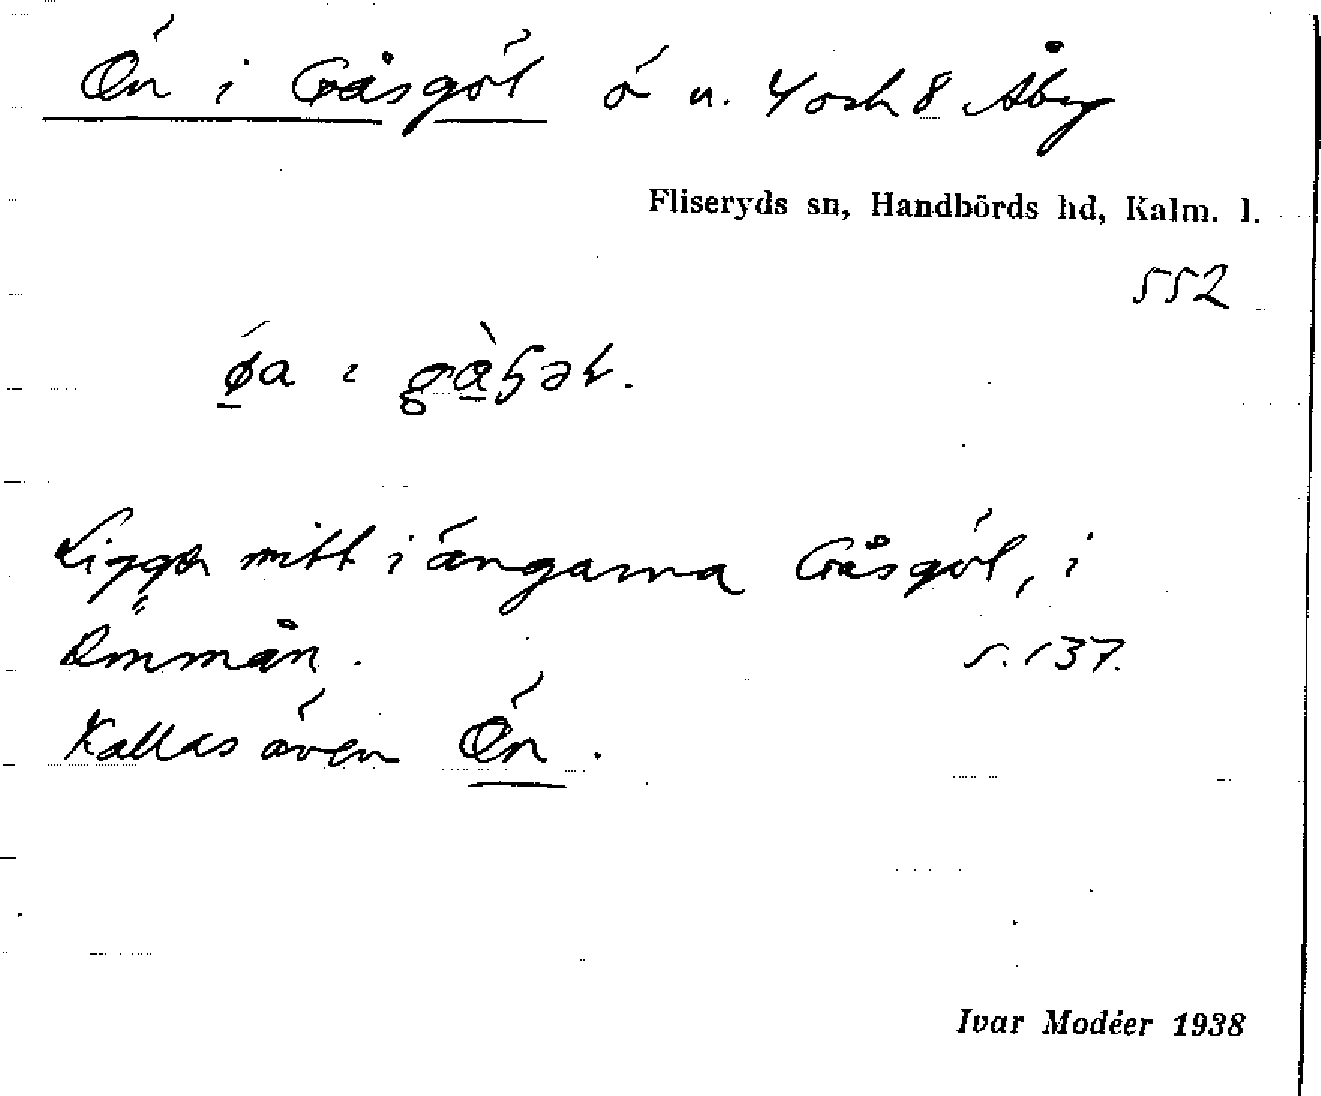 Ön i Gåsgöl ö u. 4 och 8 Åby
Fliseryds sn, Handbörds hd, Kalm. l.
552
øa i
Ligger mitt i ängarna Gåsgöl, i
Emmån. s. 137.
Kallas även Ön.
Ivar Modéer 1938